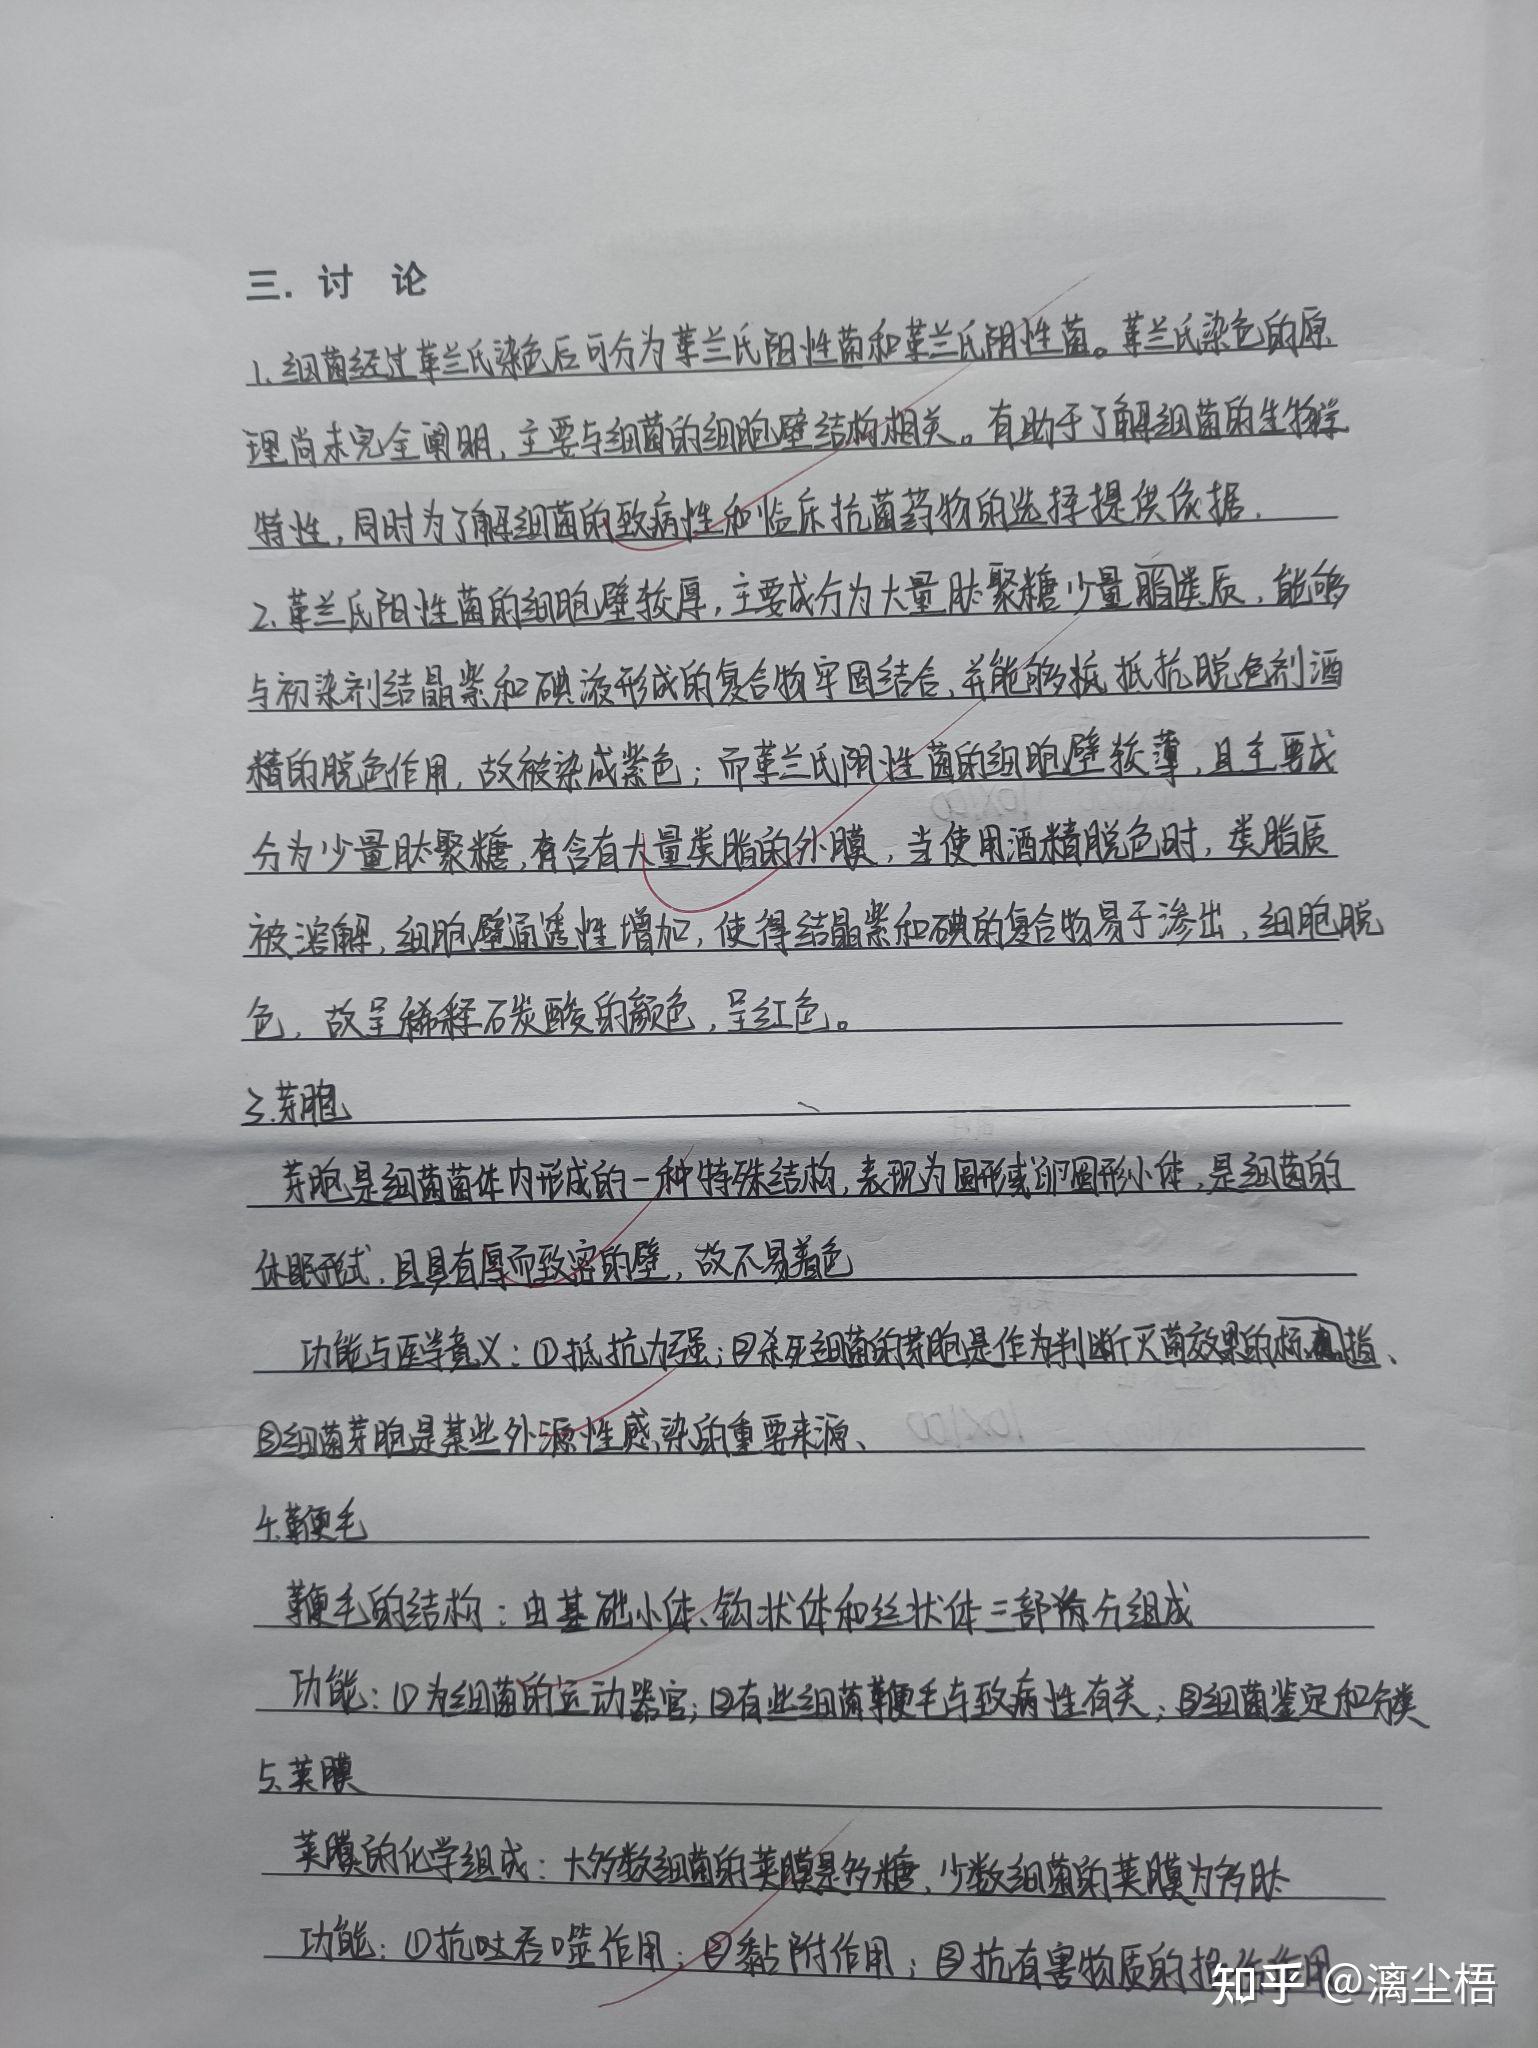 三. 讨 论
1. 细菌经过革兰氏染色后可分为革兰氏阳性菌和革兰氏阴性菌。革兰氏染色的原
理尚未完全阐明，主要与细菌的细胞壁结构相关。有助于了解细菌的生物学
特性，同时为了解细菌的致病性和临床抗菌药物的选择提供依据.
2. 革兰氏阳性菌的细胞壁较厚，主要成分为大量肽聚糖少量脂类质，能够
与初染剂结晶紫和碘液形成的复合物牢固结合，并能够抵抵抗脱色剂酒
精的脱色作用，故被染成紫色；而革兰氏阴性菌的细胞壁较薄，且主要成
分为少量肽聚糖，有含有大量类脂的外膜，当使用酒精脱色时，类脂质
被溶解，细胞壁通透性增加，使得结晶紫和碘的复合物易于渗出，细胞脱
色，故呈稀释石炭酸的颜色，呈红色。
3. 芽胞
芽胞是细菌菌体内形成的一种特殊结构，表现为圆形或卵圆形小体，是细菌的
休眠形式，且具有厚而致密的壁，故不易着色
功能与医学意义：①抵抗力强；②杀死细菌的芽胞是作为判断灭菌效果的指、
③细菌芽胞是某些外源性感染的重要来源、
4. 鞭毛
鞭毛的结构：由基础小体、钩状体和丝状体三部分组成
功能：①为细菌的运动器官；②有些细菌鞭毛与致病性有关；③细菌鉴定和分类
5、荚膜
荚膜的化学组成：大多数细菌的荚膜是多糖、少数细菌的荚膜为多肽
功能：①抗吐吞噬作用；②黏附作用；③抗有害物质的损伤作用
10×100
10×100
知乎 @漓尘梧